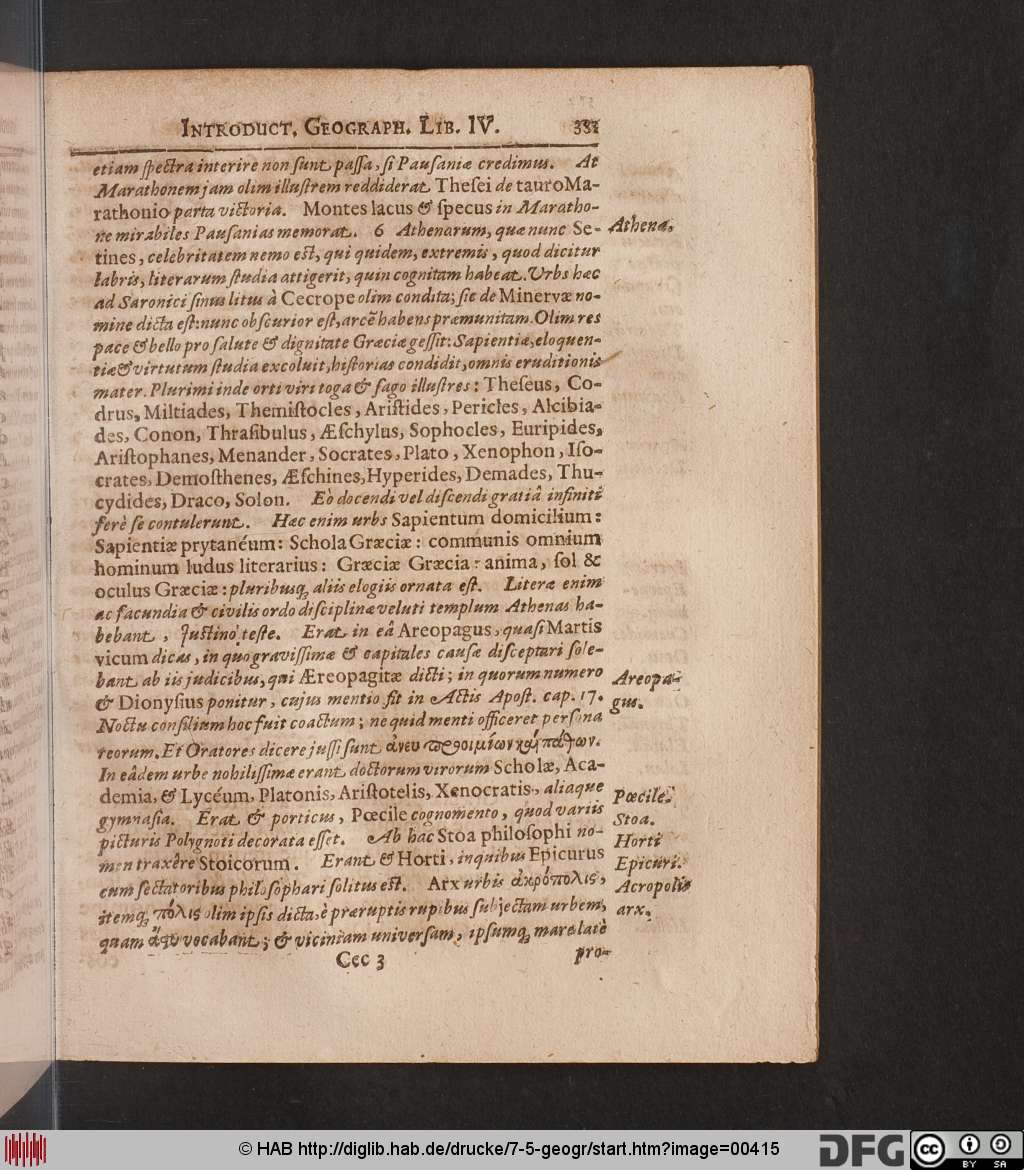 INTRODUCT. GEOGRAPH. LIB. IV.
etiam spectra interire non sunt passa, si Pausaniæ credimus. At
Marathonem jam olim illustrem reddiderat Thesei de tauro Ma-
rathonio parta victoria. Montes lacus & specus in Maratho-
ne mirabiles Pausanias memorat. 6 Athenarum, quæ nunc Se-
tines, celebritatem nemo est, qui quidem, extremis, quod dicitur
labris, literarum studia attigerit, quin cognitam habeat. Urbs hæc
ad Saronici sinus litus à Cecrope olim condita; sic de Minervæ no-
mine dicta est: nunc obscurior est, arcē habens præmunitam. Olim res
pace & bello pro salute & dignitate Græciæ gessit: Sapientiæ, eloquen-
tiæ & virtutum studia excoluit, historias condidit, omnis eruditionis
mater. Plurimi inde orti viri toga & sago illustres: Theseus, Co-
drus, Miltiades, Themistocles, Aristides, Pericles, Alcibia-
des, Conon, Thrasibulus, Æschylus, Sophocles, Euripides,
Aristophanes, Menander, Socrates, Plato, Xenophon, Iso-
crates, Demosthenes, Æschines, Hyperides, Demades, Thu-
cydides, Draco, Solon. Eò docendi vel discendi gratiâ infiniti
ferè se contulerunt. Hæc enim urbs Sapientum domicilium:
Sapientiæ prytanéum: Schola Græciæ: communis omnium
hominum ludus literarius: Græciæ Græcia: anima, sol &
oculus Græciæ: pluribusq; aliis elogiis ornata est. Literæ enim
ac facundia & civilis ordo disciplinæ veluti templum Athenas ha-
bebant, Justino teste. Erat in eâ Areopagus, quasi Martis
vicum dicas, in quo gravissimæ & capitales causæ disceptari sole-
bant ab iis judicibus, qui Æreopagitæ dicti; in quorum numero
& Dionysius ponitur, cujus mentio fit in Actis Apost. cap. 17.
Noctu consilium hoc fuit coactum; ne quid menti officeret persona
reorum. Et Oratores dicere jussi sunt ἄνευ προοιμίων καὶ πάθων.
In eâdem urbe nobilissimæ erant doctorum virorum Scholæ, Aca-
demia, & Lycéum, Platonis, Aristotelis, Xenocratis, aliaque
gymnasia. Erat & porticus, Pœcile cognomento, quod variis
picturis Polygnoti decorata esset. Ab hac Stoa philosophi no-
men traxêre Stoicorum. Erant & Horti, in quibus Epicurus
cum sectatoribus philosophari solitus est. Arx urbis ἀκρόπολις,
itemq; πόλις olim ipsis dicta, è præruptis rupibus subjectam urbem,
quam ἄςυ vocabant; & viciniam universam, ipsumq; mare latè
Ccc 3 pro-
Athenæ.
Areopa-
gus.
Pœcile.
Stoa.
Horti
Epicuri.
Acropolis
arx.
© HAB http://diglib.hab.de/drucke/7-5-geogr/start.htm?image=00415
DFG
cc
BY SA